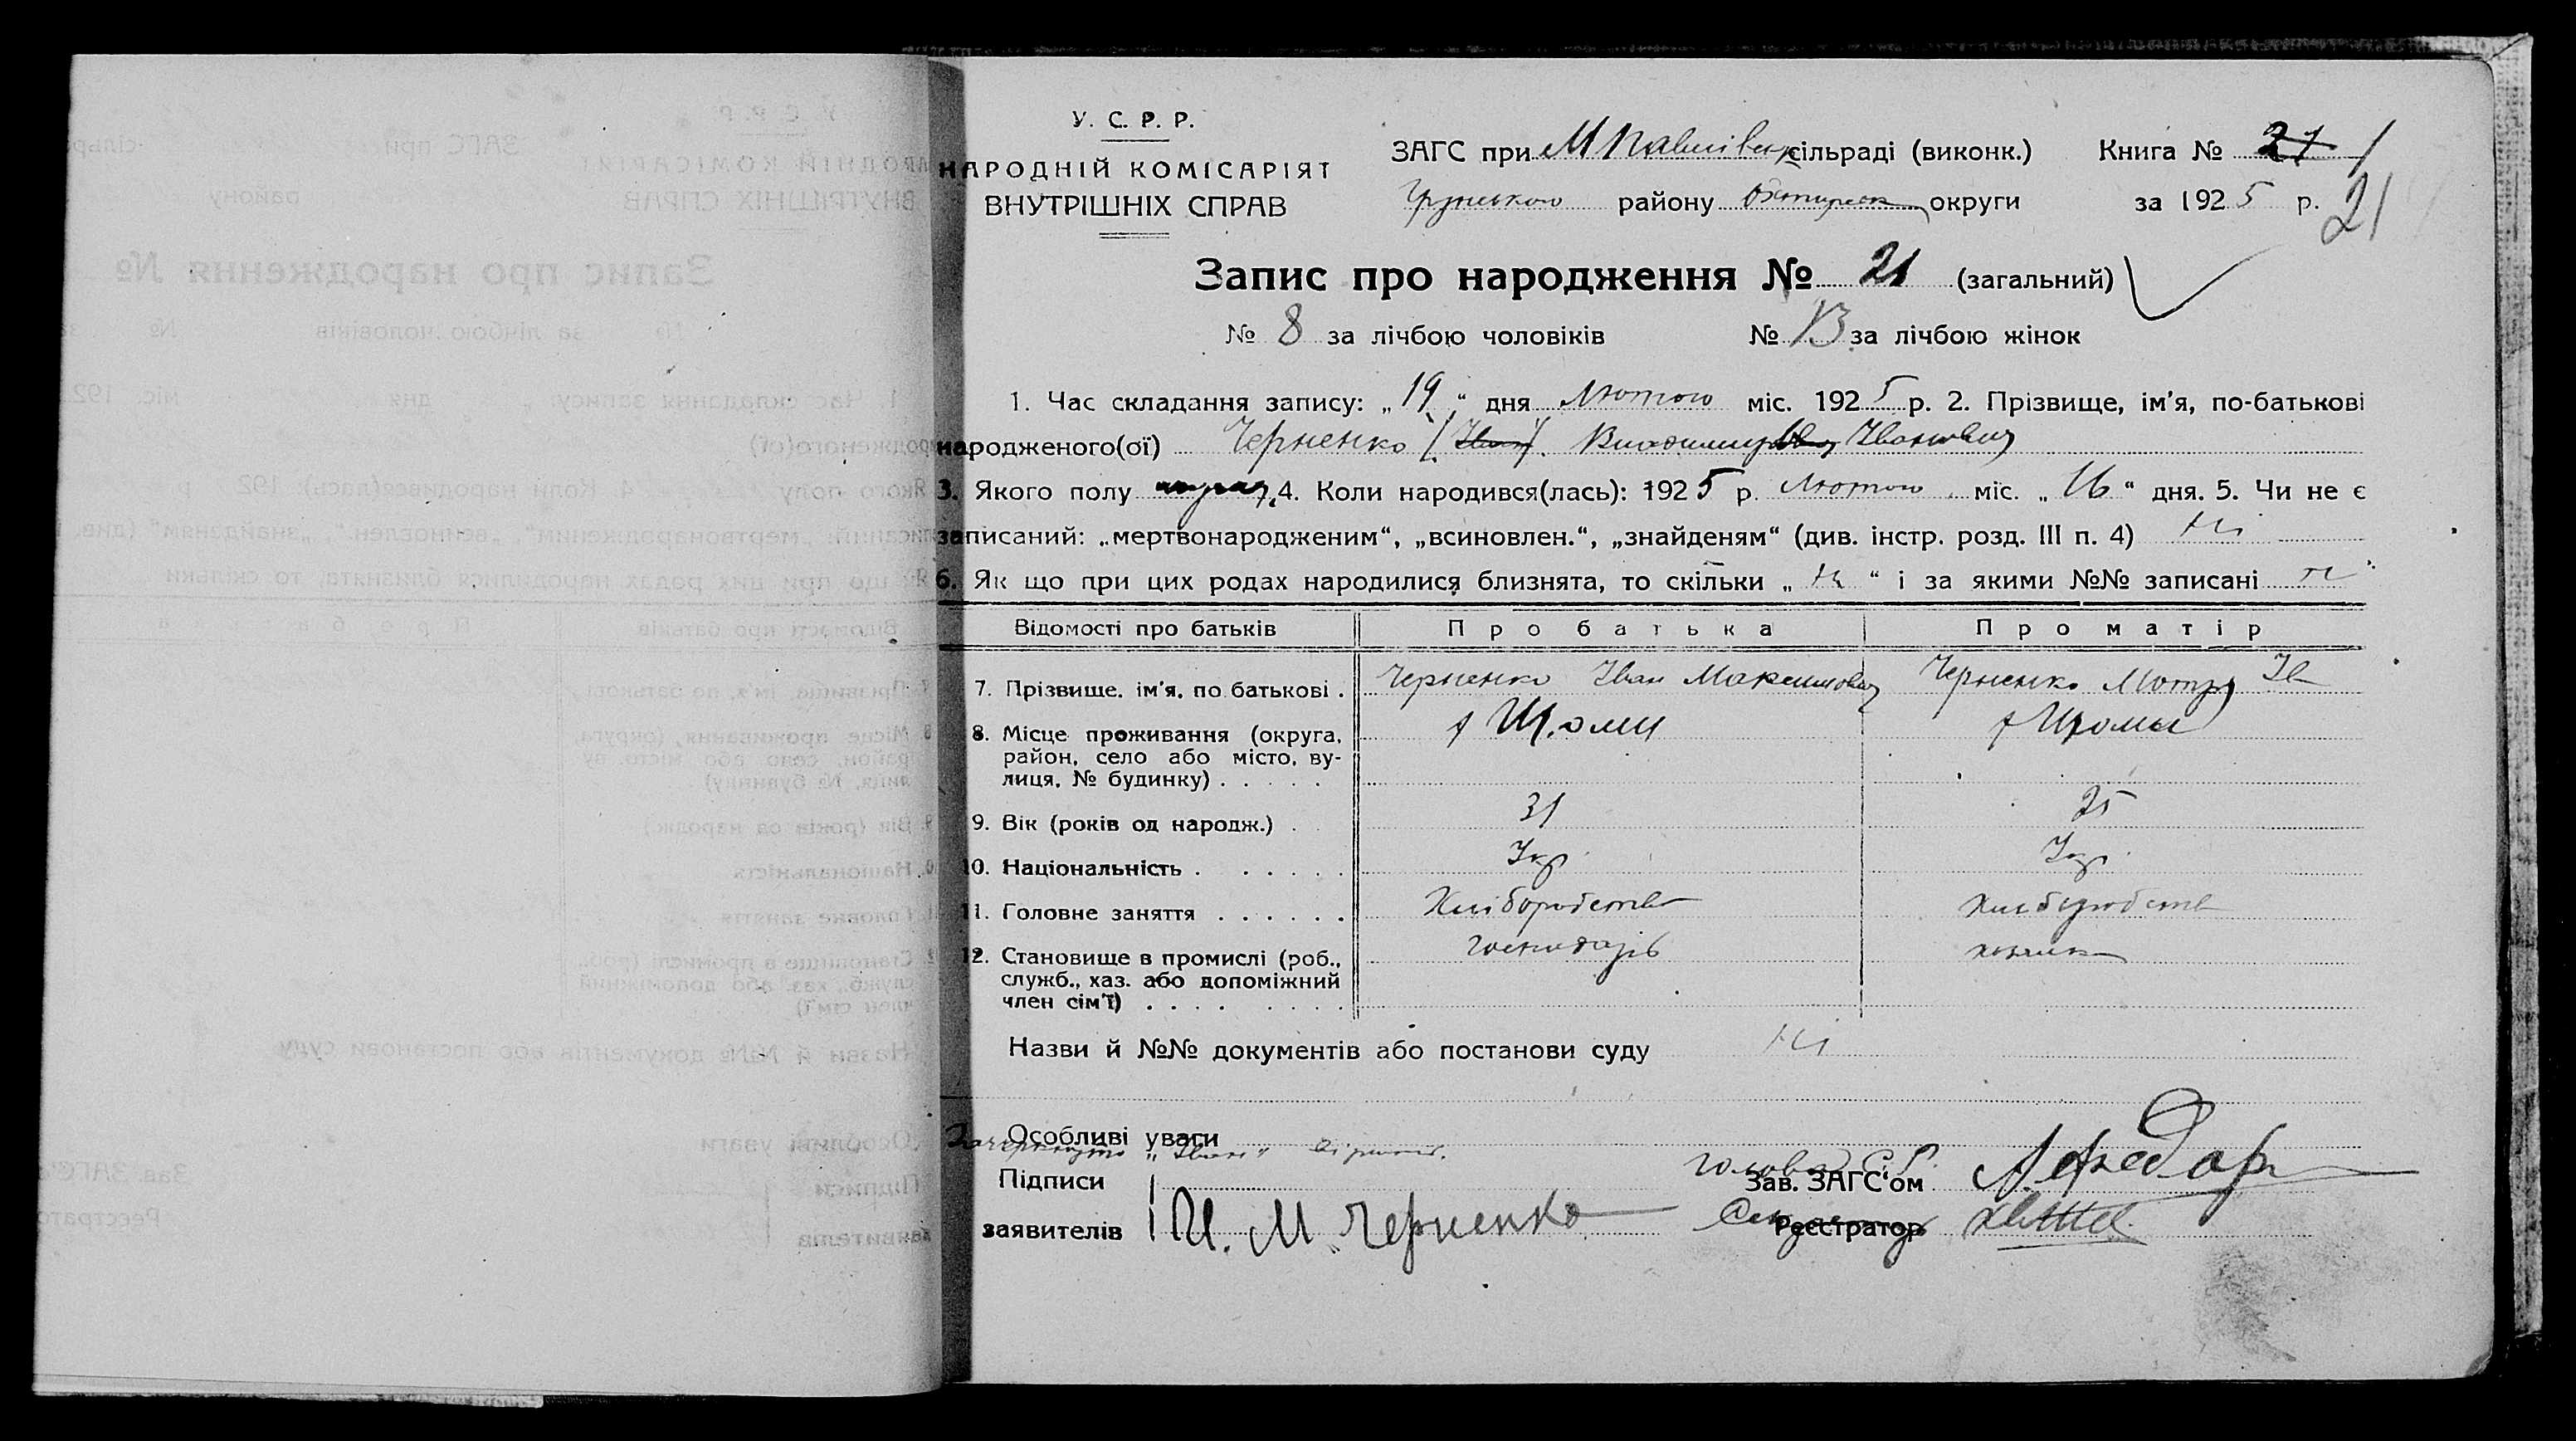 У. С. Р. Р.
НАРОДНІЙ КОМІСАРІЯТ
ВНУТРІШНІХ СПРАВ
ЗАГС при М Павлівськ сільраді (виконк.) Книга № 1
Грунського району Охтирськ округи за 1925 р. 21
Запис про народження № 21 (загальний)
№ 8 за лічбою чоловіків № 13 за лічбою жінок
1. Час складання запису: „19“ дня Лютого міс. 1925 р. 2. Прізвище, ім'я, по-батькові
народженого(ої) Черненко (Іван). Владимир Іванович
3. Якого полу 4. Коли народився(лась): 1925 р. Лютого міс. „16“ дня. 5. Чи не є
записаний: „мертвонародженим“, „всиновлен.“, „знайденям“ (див. інстр. розд. III п. 4) Ні
6. Як що при цих родах народилися близнята, то скільки „Ні“ і за якими №№ записані ні
Відомості про батьків Про батька Про матір
7. Прізвище, ім'я, по батькові . Черненко Іван Максимович Черненко Мотря Ів
8. Місце проживання (округа,
район, село або місто, ву-
лиця, № будинку) . . . . .
9. Вік (років од народж.) . 31 25
10. Національність . . . . . . Укр. Укр.
11. Головне заняття . . . . . . Хліборобство Хліборобств
12. Становище в промислі (роб.,
служб., хаз. або допоміжний
член сім'ї) . . . . . . . . Господарів
Назви й №№ документів або постанови суду Ні
Особливі уваги
Зачеркнуто „Іван“
Підписи
заявителів И. М. Черненко
Голова С. Р.
Зав. ЗАГС'ом
Реєстратор